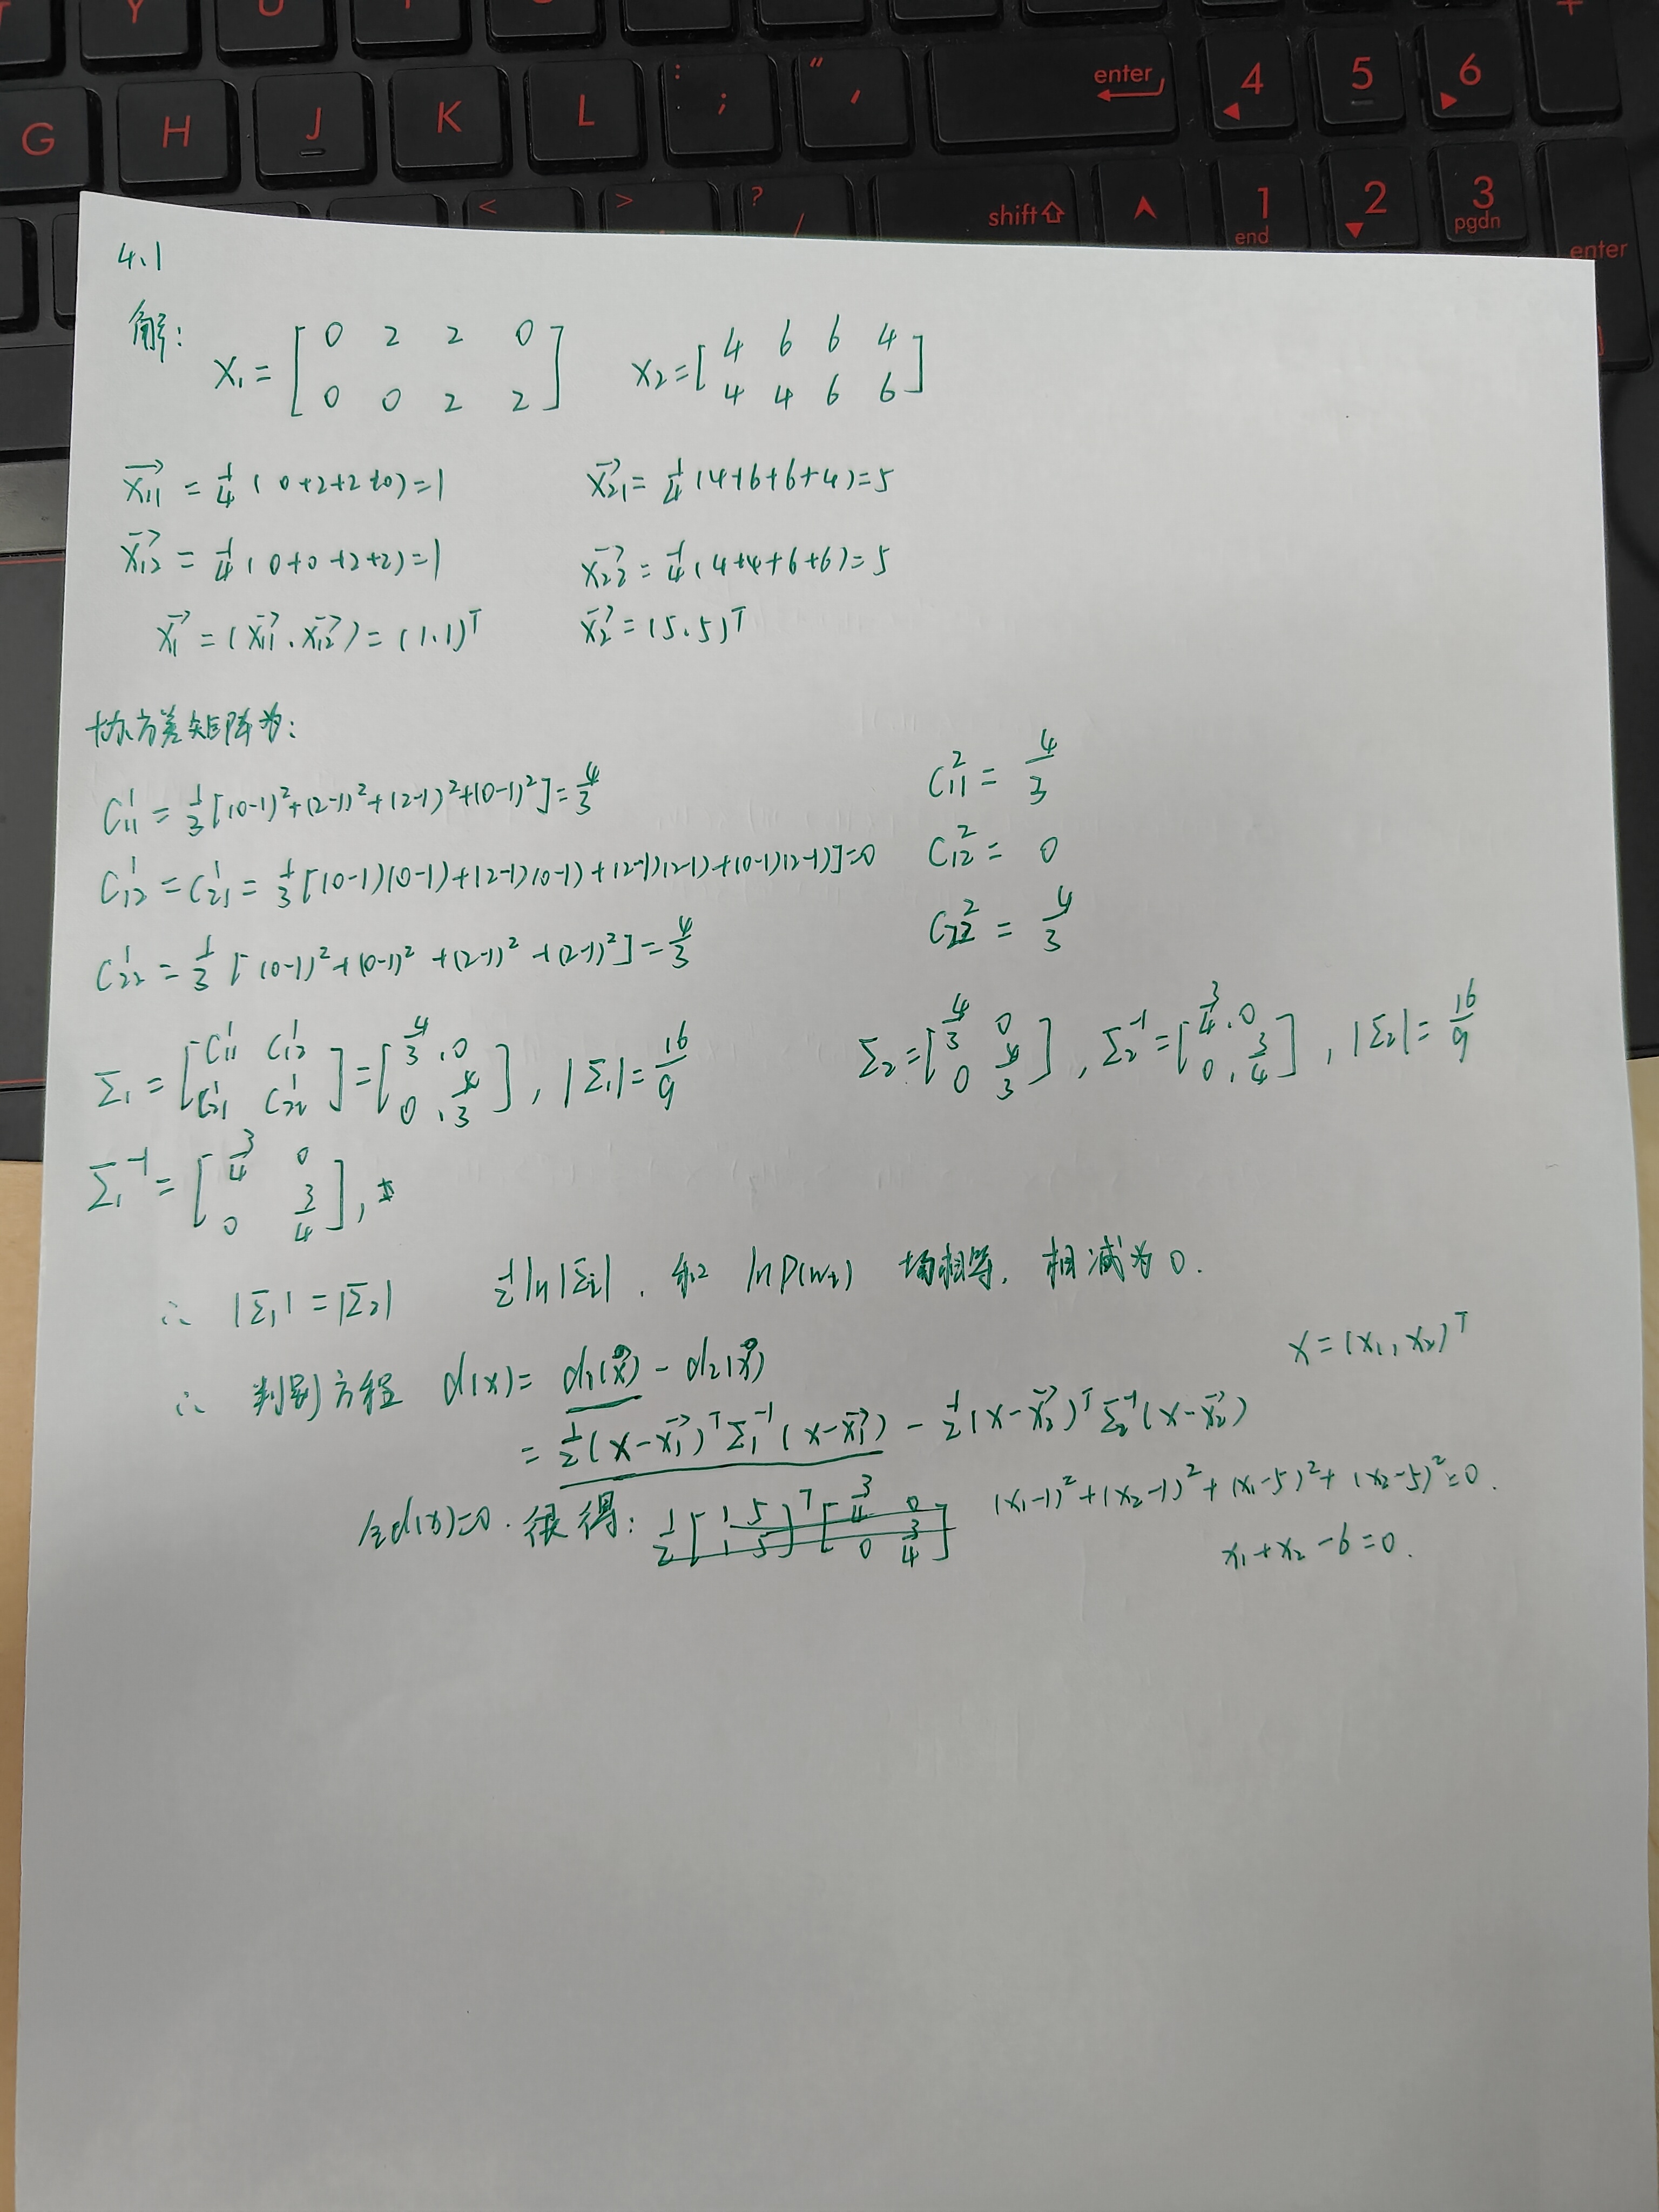 Y U
G H J K L : ; " ' enter 4 5 6 +
< > ? / shift 1 end 2 3 pgdn enter
4.1
解:
X₁ = [ 0 2 2 0
0 0 2 2 ]
X₂ = [ 4 6 6 4
4 4 6 6 ]
X₁₁ = 1/4 (0+2+2+0) = 1
X₂₁ = 1/4 (4+6+6+4) = 5
X₁₂ = 1/4 (0+0+2+2) = 1
X₂₂ = 1/4 (4+4+6+6) = 5
X₁ = (X₁₁, X₁₂) = (1.1)ᵀ
X₂ = (5.5)ᵀ
协方差矩阵为:
C₁₁¹ = 1/3 [(0-1)²+(2-1)²+(2-1)²+(0-1)²] = 4/3
C₁₁² = 4/3
C₁₂¹ = C₂₁¹ = 1/3 [(0-1)(0-1)+(2-1)(0-1)+(2-1)(2-1)+(0-1)(2-1)] = 0
C₁₂² = 0
C₂₂¹ = 1/3 [(0-1)²+(0-1)²+(2-1)²+(2-1)²] = 4/3
C₂₂² = 4/3
Σ₁ = [ C₁₁¹ C₁₂¹
C₂₁¹ C₂₂¹ ] = [ 4/3 . 0
0 . 4/3 ], |Σ₁| = 16/9
Σ₂ = [ 4/3 0
0 4/3 ], Σ₂⁻¹ = [ 3/4 . 0
0 . 3/4 ], |Σ₂| = 16/9
Σ₁⁻¹ = [ 3/4 0
0 3/4 ],
∴ |Σ₁| = |Σ₂| 1/2 ln|Σi| . 和 ln P(wi) 均相等, 相减为 0.
∴ 判别方程 d(x) = d₁(x) - d₂(x)
X = (x₁, x₂)ᵀ
= 1/2 (X-X₁)ᵀ Σ₁⁻¹ (X-X₁) - 1/2 (X-X₂)ᵀ Σ₂⁻¹ (X-X₂)
令d(x)=0. 得: 1/2 [ 1 5
1 5 ]ᵀ [ 3/4 0
0 3/4 ]
(x₁-1)²+(x₂-1)²+(x₁-5)²+(x₂-5)²=0.
x₁+x₂-6=0.